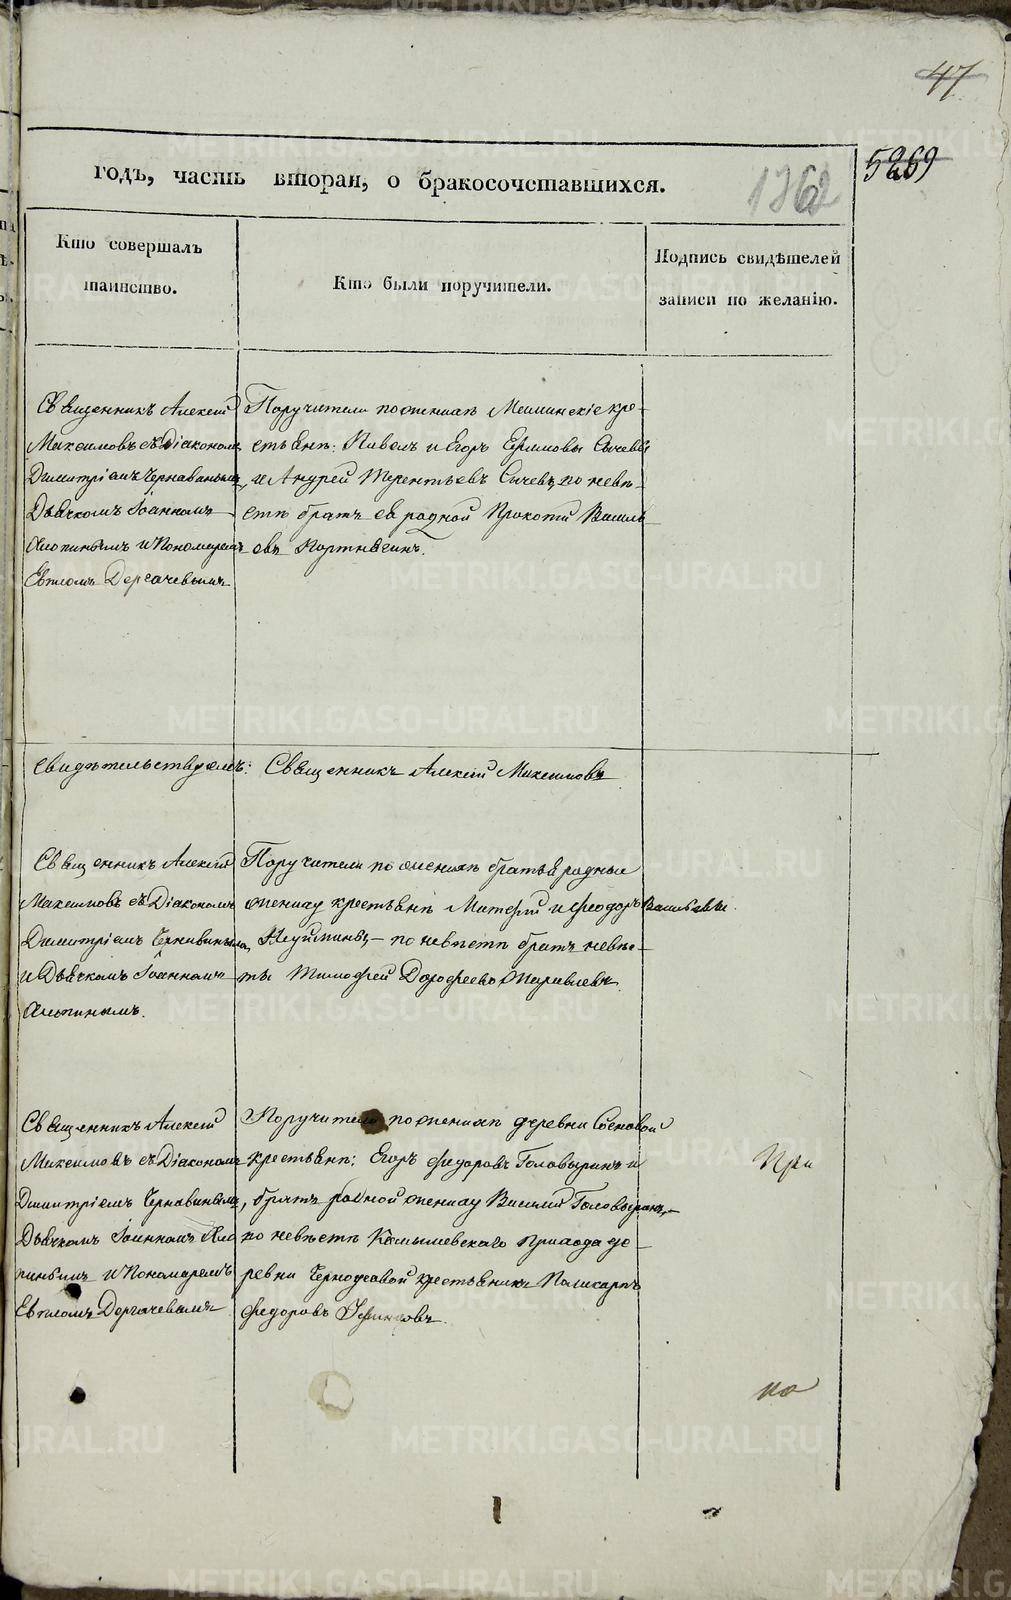 47
5269
годъ, часть вторая, о бракосочетавшихся.
1362
Кто совершалъ
таинство.
Кто были поручители.
Подпись свидѣтелей
записи по желанію.
Священникъ Алексій
Максимовъ съ Діакономъ
Димитріемъ Чернавинымъ
Дьячкомъ Іоанномъ
и Пономаремъ
Дергачевымъ
Поручители по женихѣ кре-
стьяне: Павелъ и Егоръ Ефимовы Сычевы
и Андрей Терентьевъ Сычевъ, по невѣ-
стѣ братъ ея родной Прокопій Василь
евъ
свидѣтельствуемъ: Священникъ Алексій Максимовъ
Священникъ Алексій
Максимовъ съ Діакономъ
Димитріемъ Чернавинымъ
и Дьячкомъ Іоанномъ
Поручители по женихѣ братья родные
жениху крестьяне и Феодоръ Васильевы
Неуймины, – по невѣстѣ братъ невѣс-
ты Тимофей Дорофеевъ Журавлевъ.
Священникъ Алексій
Максимовъ съ Діакономъ
Димитріемъ Чернавинымъ
Дьячкомъ Іоанномъ
и Пономаремъ
Дергачевымъ
Поручители по женихѣ деревни Сосновой
крестьяне: Егоръ Федоровъ Головыринъ и
братъ родной жениху Василій Головыринъ, –
по невѣстѣ Камышевскаго прихода де-
ревни крестьянинъ Поликарпъ
Федоровъ
При
на
METRIKI.GASO-URAL.RU